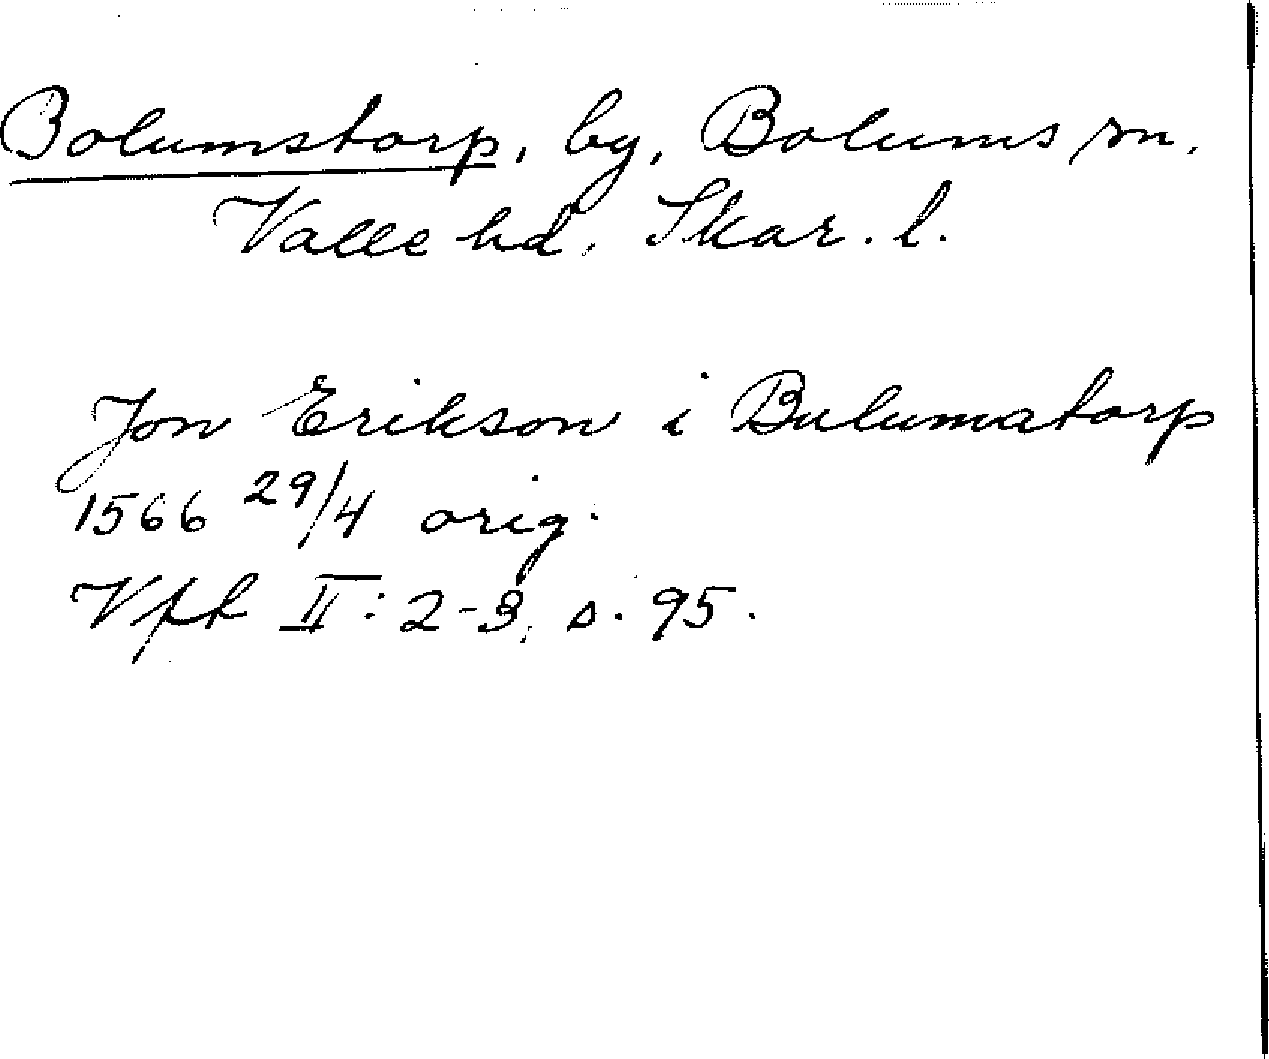 Bolumstorp, by, Bolums sn.
Valle hd. Skar. l.
Jon Erikson i Bulumatorp
1566 29/4 orig.
Vft II: 2-3, s. 95.